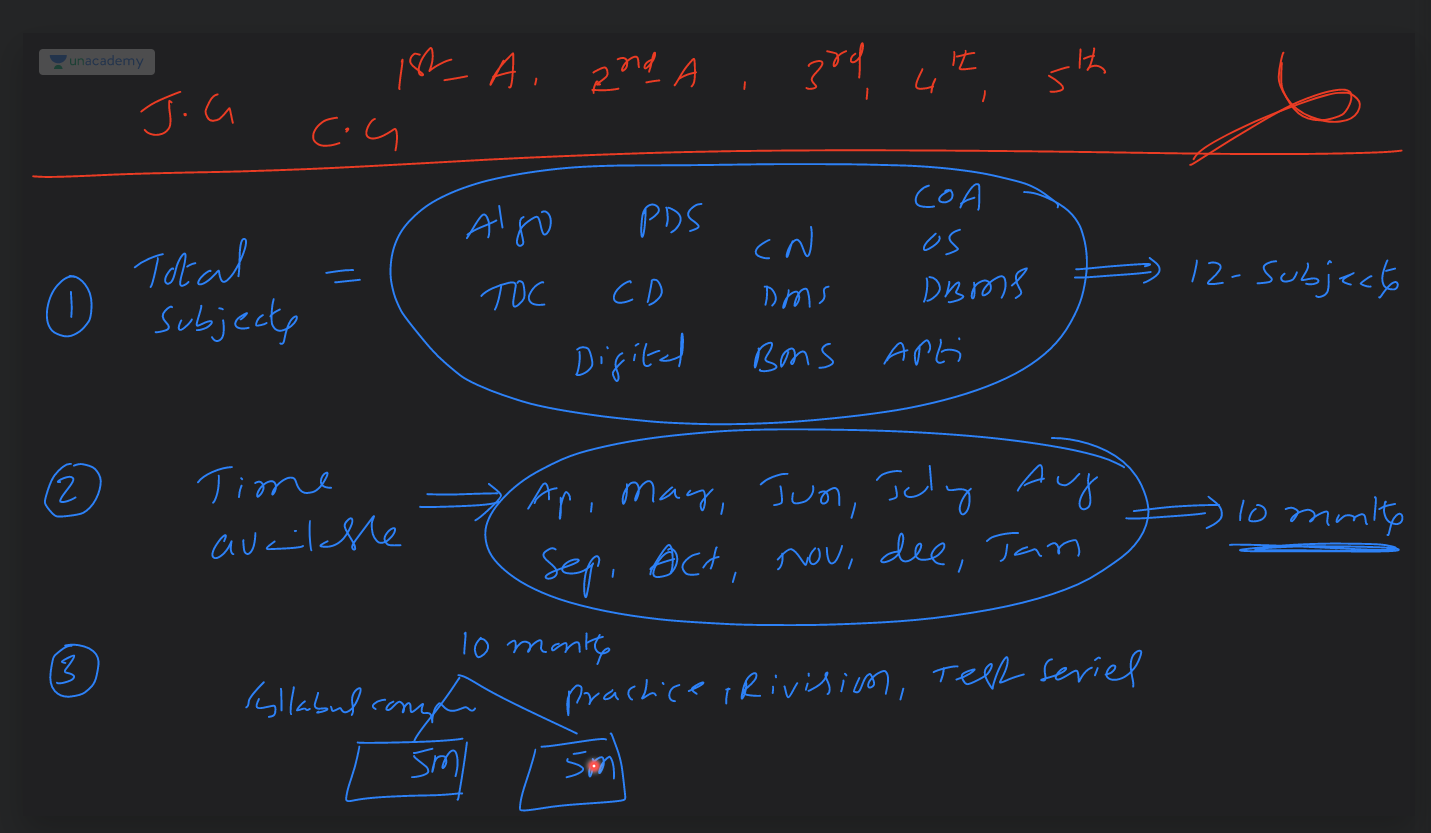 unacademy
1st - A, 2nd - A, 3rd, 4th, 5th
J.G C.G
① Total Subjects = Algo PDS CN COA OS
TOC CD DMS DBMS
Digital BMS APti
⇒ 12 - Subjects
② Time available ⇒ Ap, may, Jun, July Aug
Sep, Oct, Nov, dec, Jan
⇒ 10 months
③ 10 months
Syllabus comp
practice, Rivision, Test Series
5m 5m